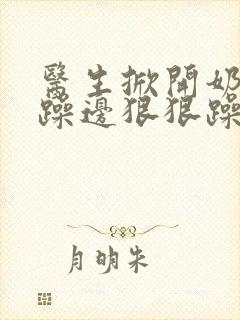 醫生掀開奶
躁邊狠狠躁
月明朱